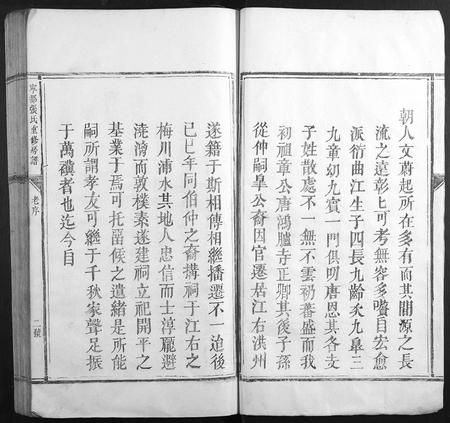 朝人文蔚起所在多有而其開源之長
流之遠彰匕可考無容多喙自宏愈
派衍曲江生子四長九齡次九臯三
九章幼九賓一門俱叨唐恩其各支
子姓散處不一無不雲礽蕃盛而我
初祖章公唐鴻臚寺正卿其後子孫
從仲嗣臯公裔因官遷居江右洪州
遂籍于斯相傳相繼播遷不一迨後
已巳年同伯仲之裔搆祠于江右之
梅川浦水其地人忠信而士淳龐避
澆漓而敦樸素遂建祠立祀開平之
基業于焉可托畱候之遺緒是所能
嗣所謂孝友可繼于千秋家聲足振
于萬禩者也迄今目
寧都張氏重修房譜
老序
二號